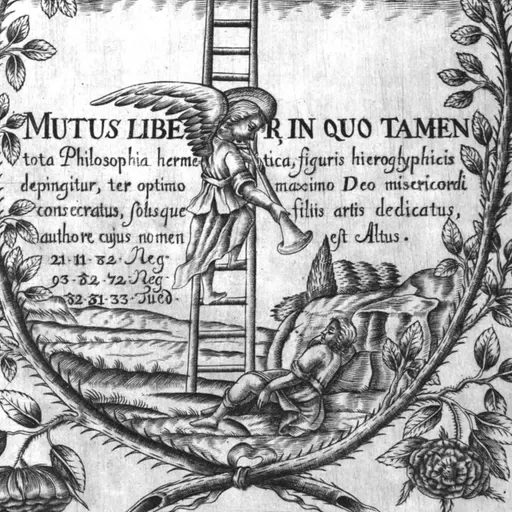 MUTUS LIBER, IN QUO TAMEN
tota Philosophia hermetica, figuris hieroglyphicis
depingitur, ter optimo maximo Deo misericordi
consecratus, solisque filiis artis dedicatus,
authore cujus nomen est Altus.
21·11·82·Neg·
93·82·72·Neg·
82·81·33·Tued·